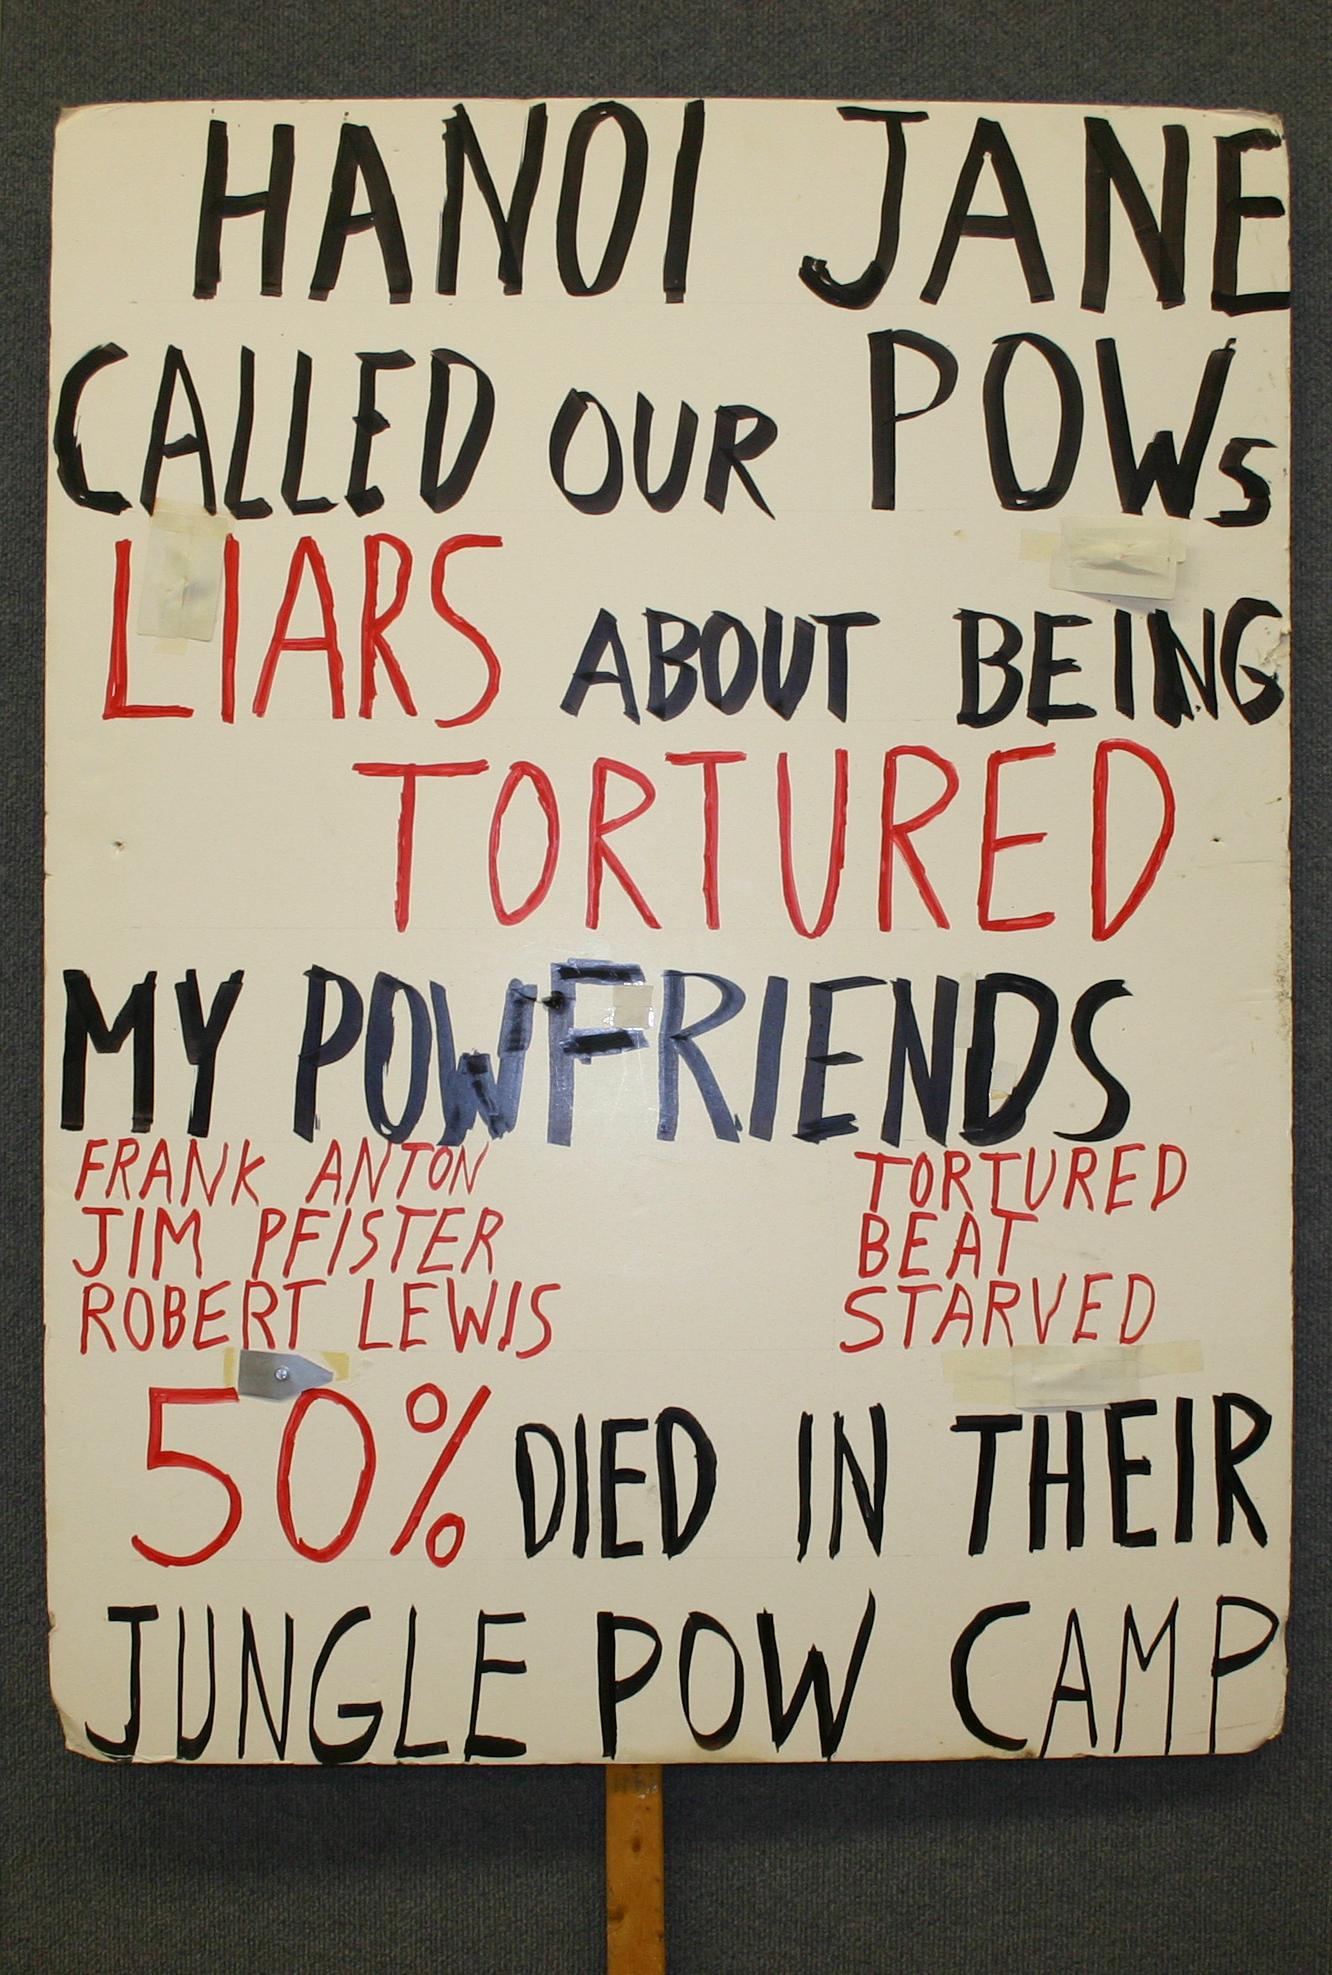 HANOI JANE
CALLED OUR POWs
LIARS ABOUT BEING
TORTURED
MY POW FRIENDS
FRANK ANTON TORTURED
JIM PFISTER BEAT
ROBERT LEWIS STARVED
50% DIED IN THEIR
JUNGLE POW CAMP